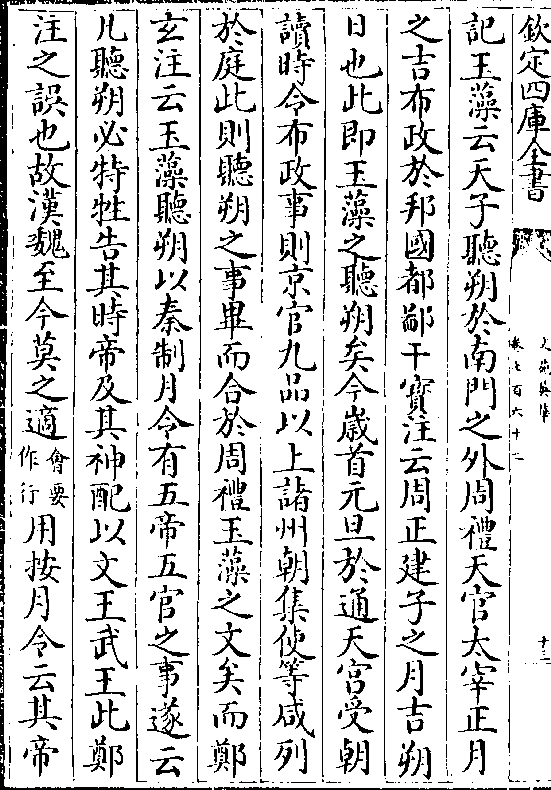 欽定四庫全書
文苑英華
卷七百六十二
十二
記玉藻云天子聽朔於南門之外周禮天官太宰正月
之吉布政於邦國都鄙干寳注云周正建子之月吉朔
日也此即玉藻之聽朔矣今嵗首元旦於通天宫受朝
讀時令布政事則京官九品以上諸州朝集使等咸列
於庭此則聽朔之事畢而合於周禮玉藻之文矣而鄭
玄注云玉藻聽朔以秦制月令有五帝五官之事遂云
凡聽朔必特牲告其時帝及其神配以文王武王此鄭
注之誤也故漢魏至今莫之適會要作行用按月令云其帝